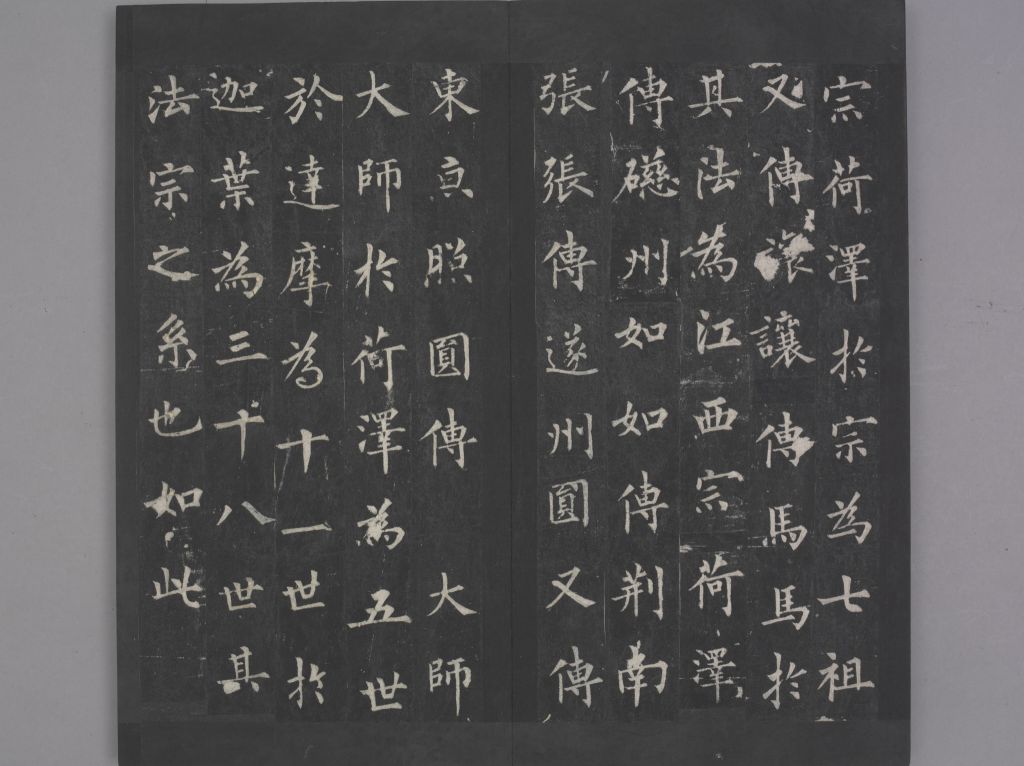 宗荷澤扵宗為七祖
又傳讓讓傳馬馬扵
其法為江西宗荷澤
傳礠州如如傳荊南
張張傳遂州圓又傳
東京照圓傳 大師
大師扵荷澤為五世
於達摩為十一世扵
迦葉為三十八世其
法宗之系也如此